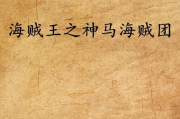 海贼王之神马海贼团